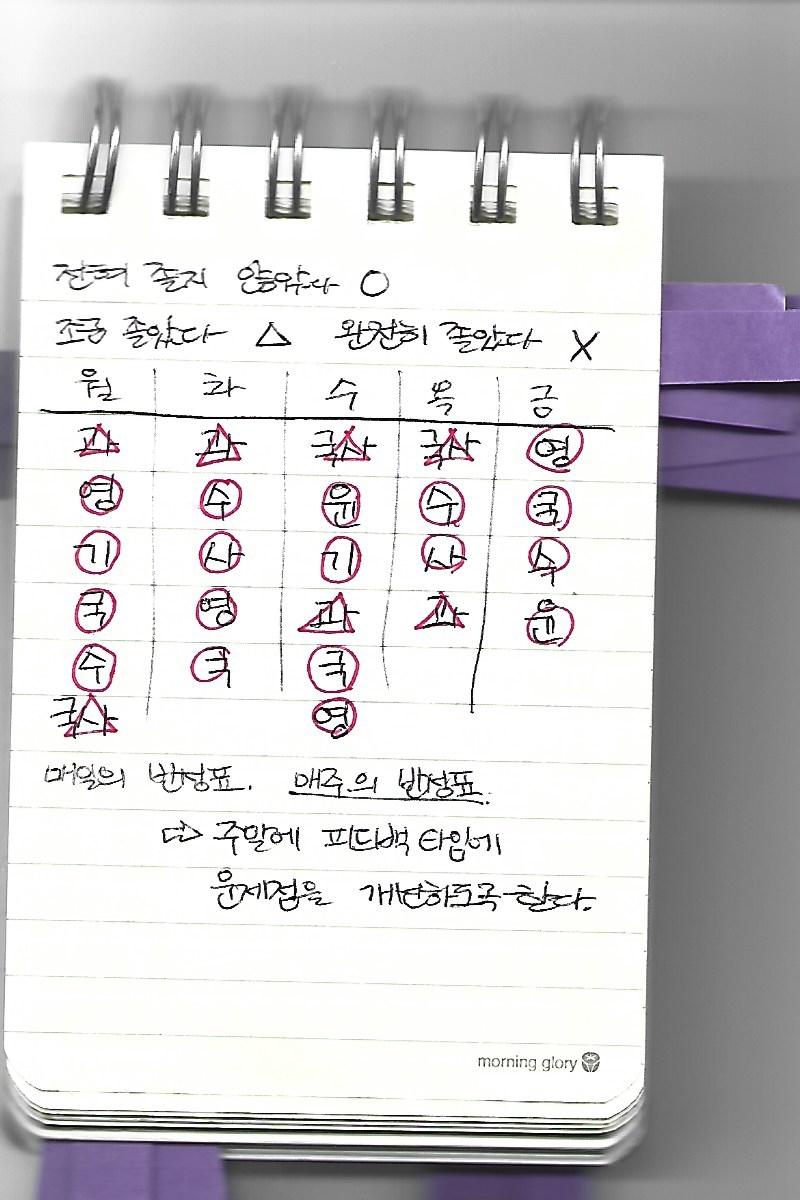 전혀 졸지 않았다 O
조금 졸았다 △ 완전히 졸았다 X
월 화 수 목 금
과 과 국사 국사 영
영 수 윤 수 국
기 사 기 사 수
국 영 과 과 윤
수 국 국
국사 영
매일의 반성표. 매주의 반성표.
⇨ 주말에 피드백 타임에
문제점을 개선하도록 한다.
morning glory